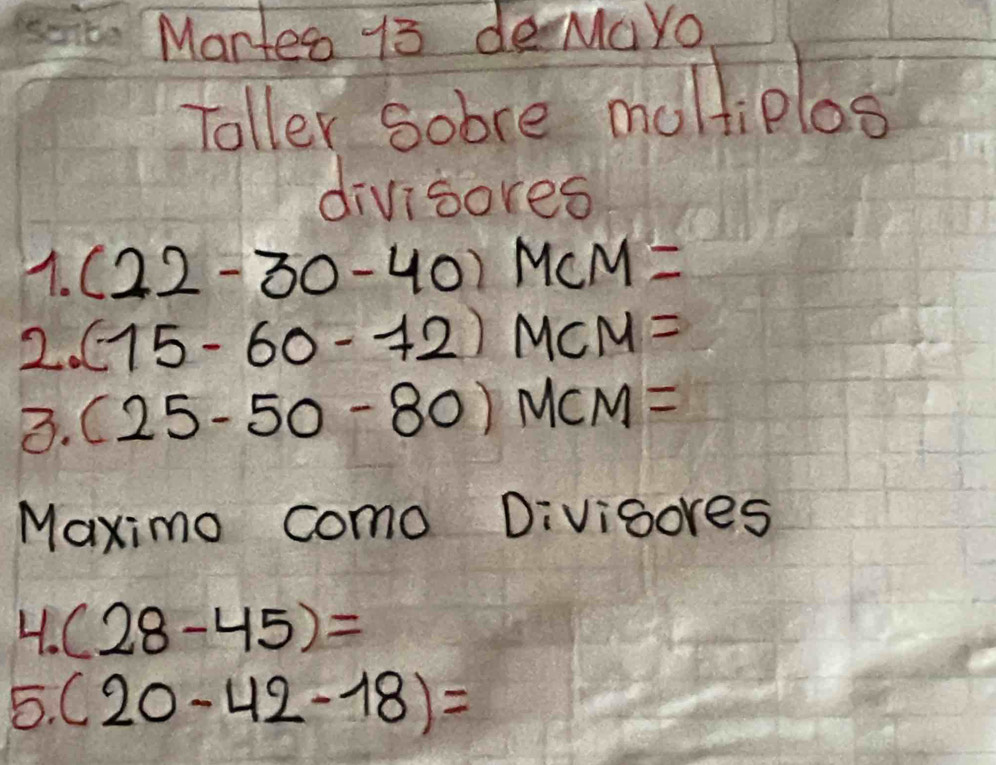 Scribe
Martes 13 de Mayo
Taller Sobre moltiplos
divisores
1.(22-30-40) MCM=
2.(15-60-12) MCM=
3.(25-50-80) MCM=
Maximo como Divisores
4.(28-45)=
5.(20-42-18)=